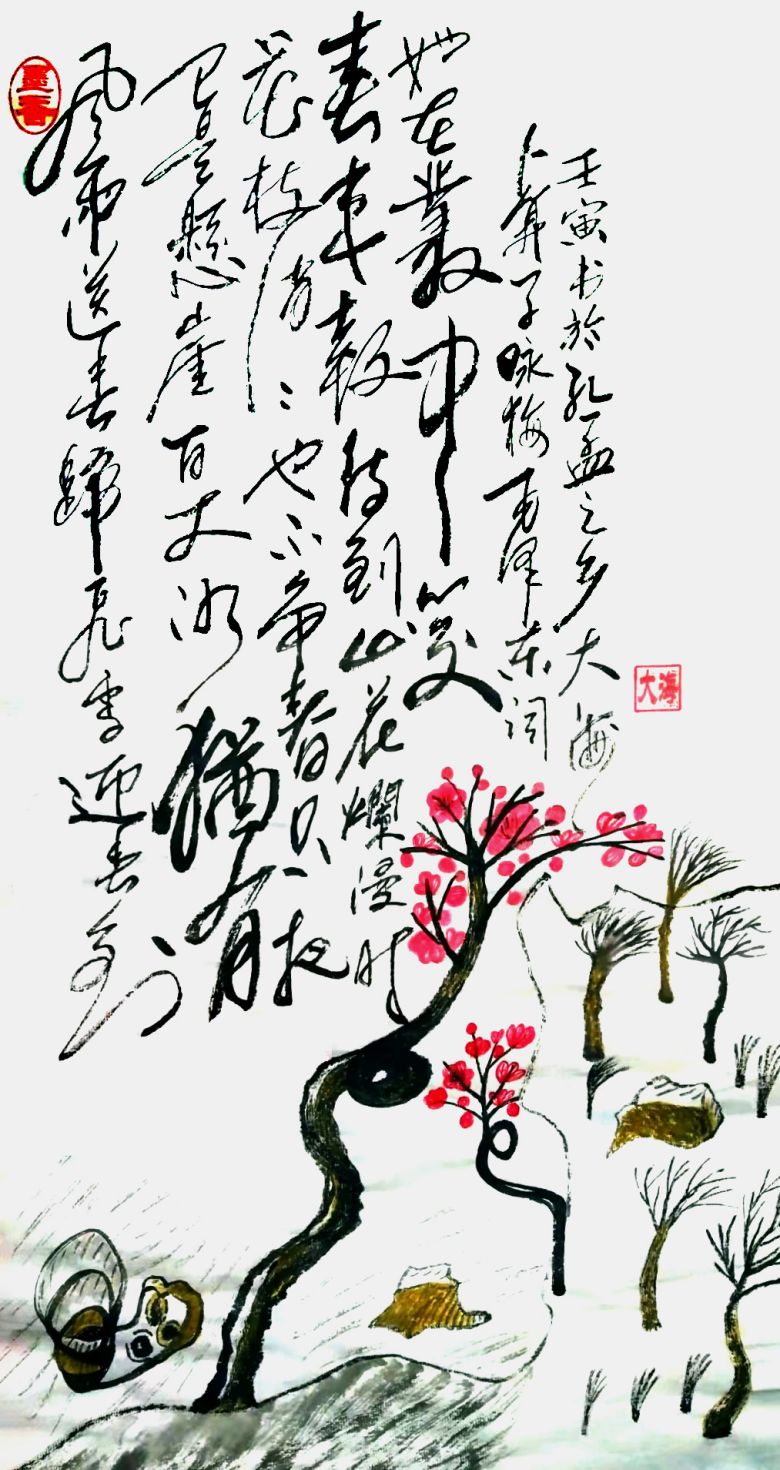 墨香
風雨送春歸飛雪迎春到
已是懸崖百丈冰猶有
花枝俏〻也不争春只把
春來報待到山花爛漫时
她在叢中笑
卜算子咏梅毛泽东词
壬寅书於孔孟之乡大海
大海